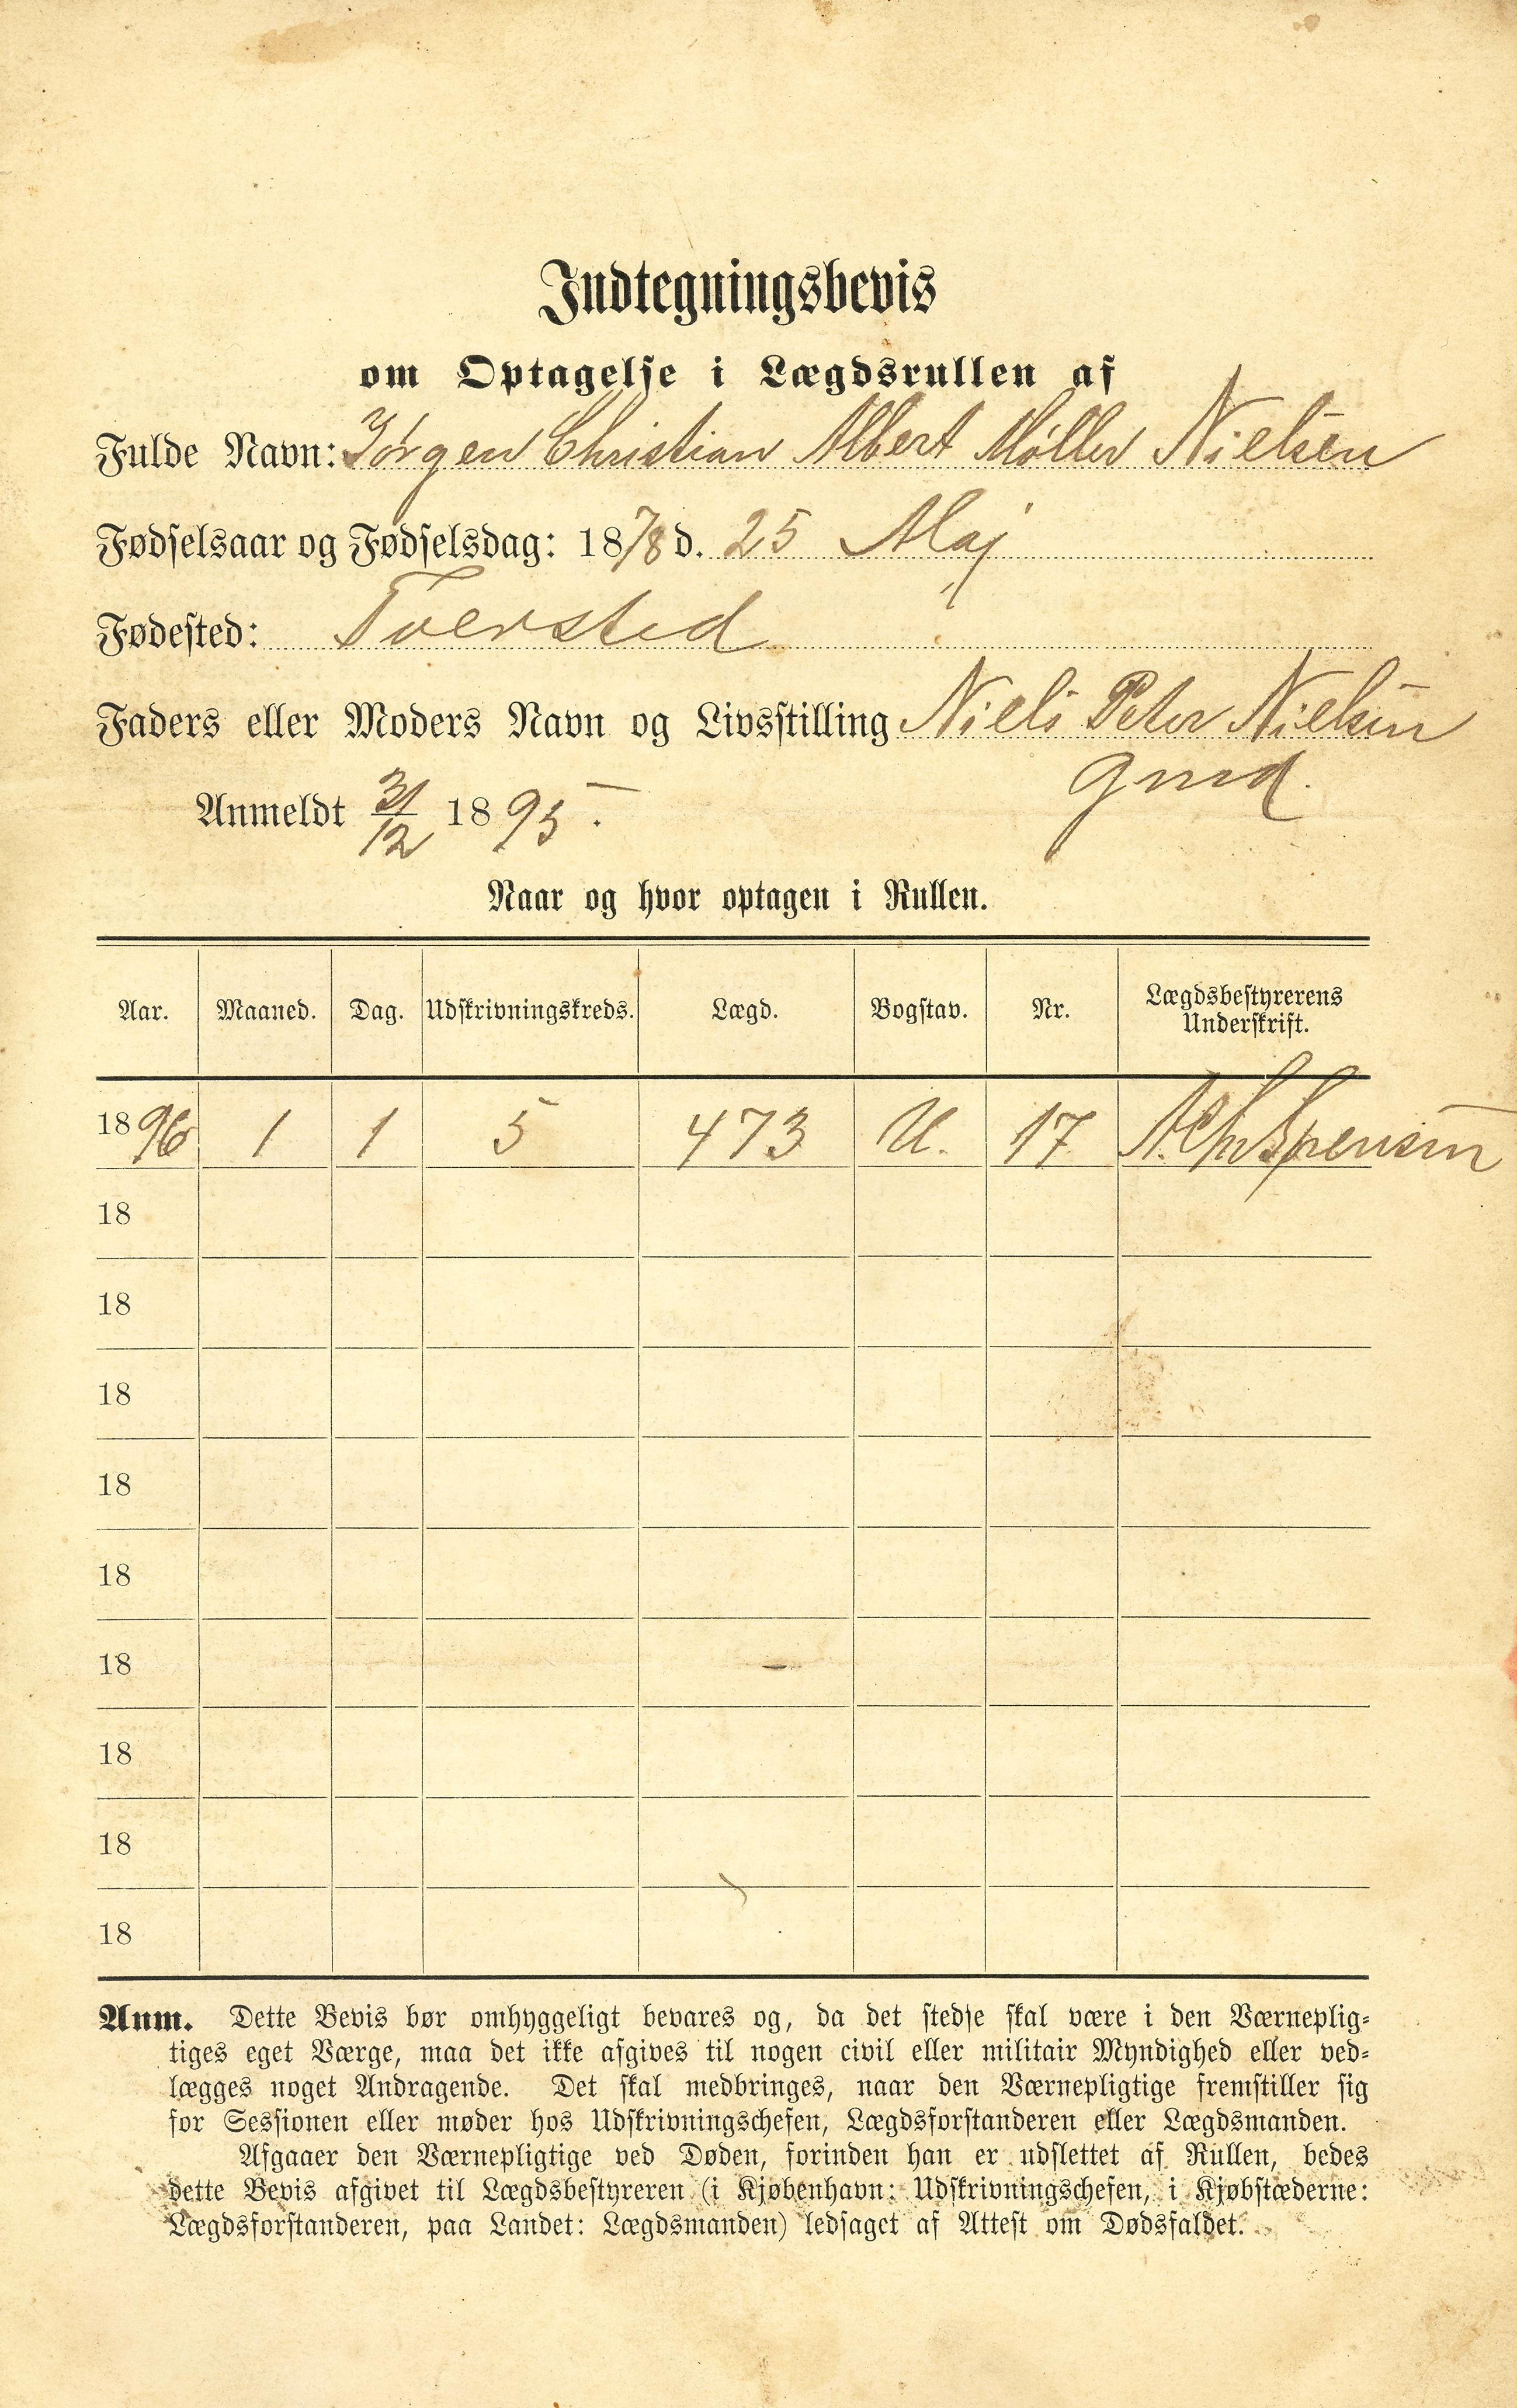 Indtegningsbevis
om Optagelse i Lægdsrullen af
Fulde Navn: Jørgen Christian Albert Møller Nielsen
Fødselsaar og Fødselsdag: 1878 d. 25 Maj
Fødested: Tversted
Faders eller Moders Navn og Livsstilling Niels Peter Nielsen
Gmd.
Anmeldt 31/12 1895.
Naar og hvor optagen i Rullen.
Aar. Maaned. Dag. Udskrivningskreds. Lægd. Bogstav. Nr. Lægdsbestyrerens Underskrift.
1896 1 1 5 473 U. 17
18
18
18
18
18
18
18
18
18
Anm. Dette Bevis bør omhyggeligt bevares og, da det stedse skal være i den Værneplig-
tiges eget Værge, maa det ikke afgives til nogen civil eller militair Myndighed eller ved-
lægges noget Andragende. Det skal medbringes, naar den Værnepligtige fremstiller sig
for Sessionen eller møder hos Udskrivningschefen, Lægdsforstanderen eller Lægdsmanden.
Afgaaer den Værnepligtige ved Døden, forinden han er udslettet af Rullen, bedes
dette Bevis afgivet til Lægdsbestyreren (i Kjøbenhavn: Udskrivningschefen, i Kjøbstæderne:
Lægdsforstanderen, paa Landet: Lægdsmanden) ledsaget af Attest om Dødsfaldet.